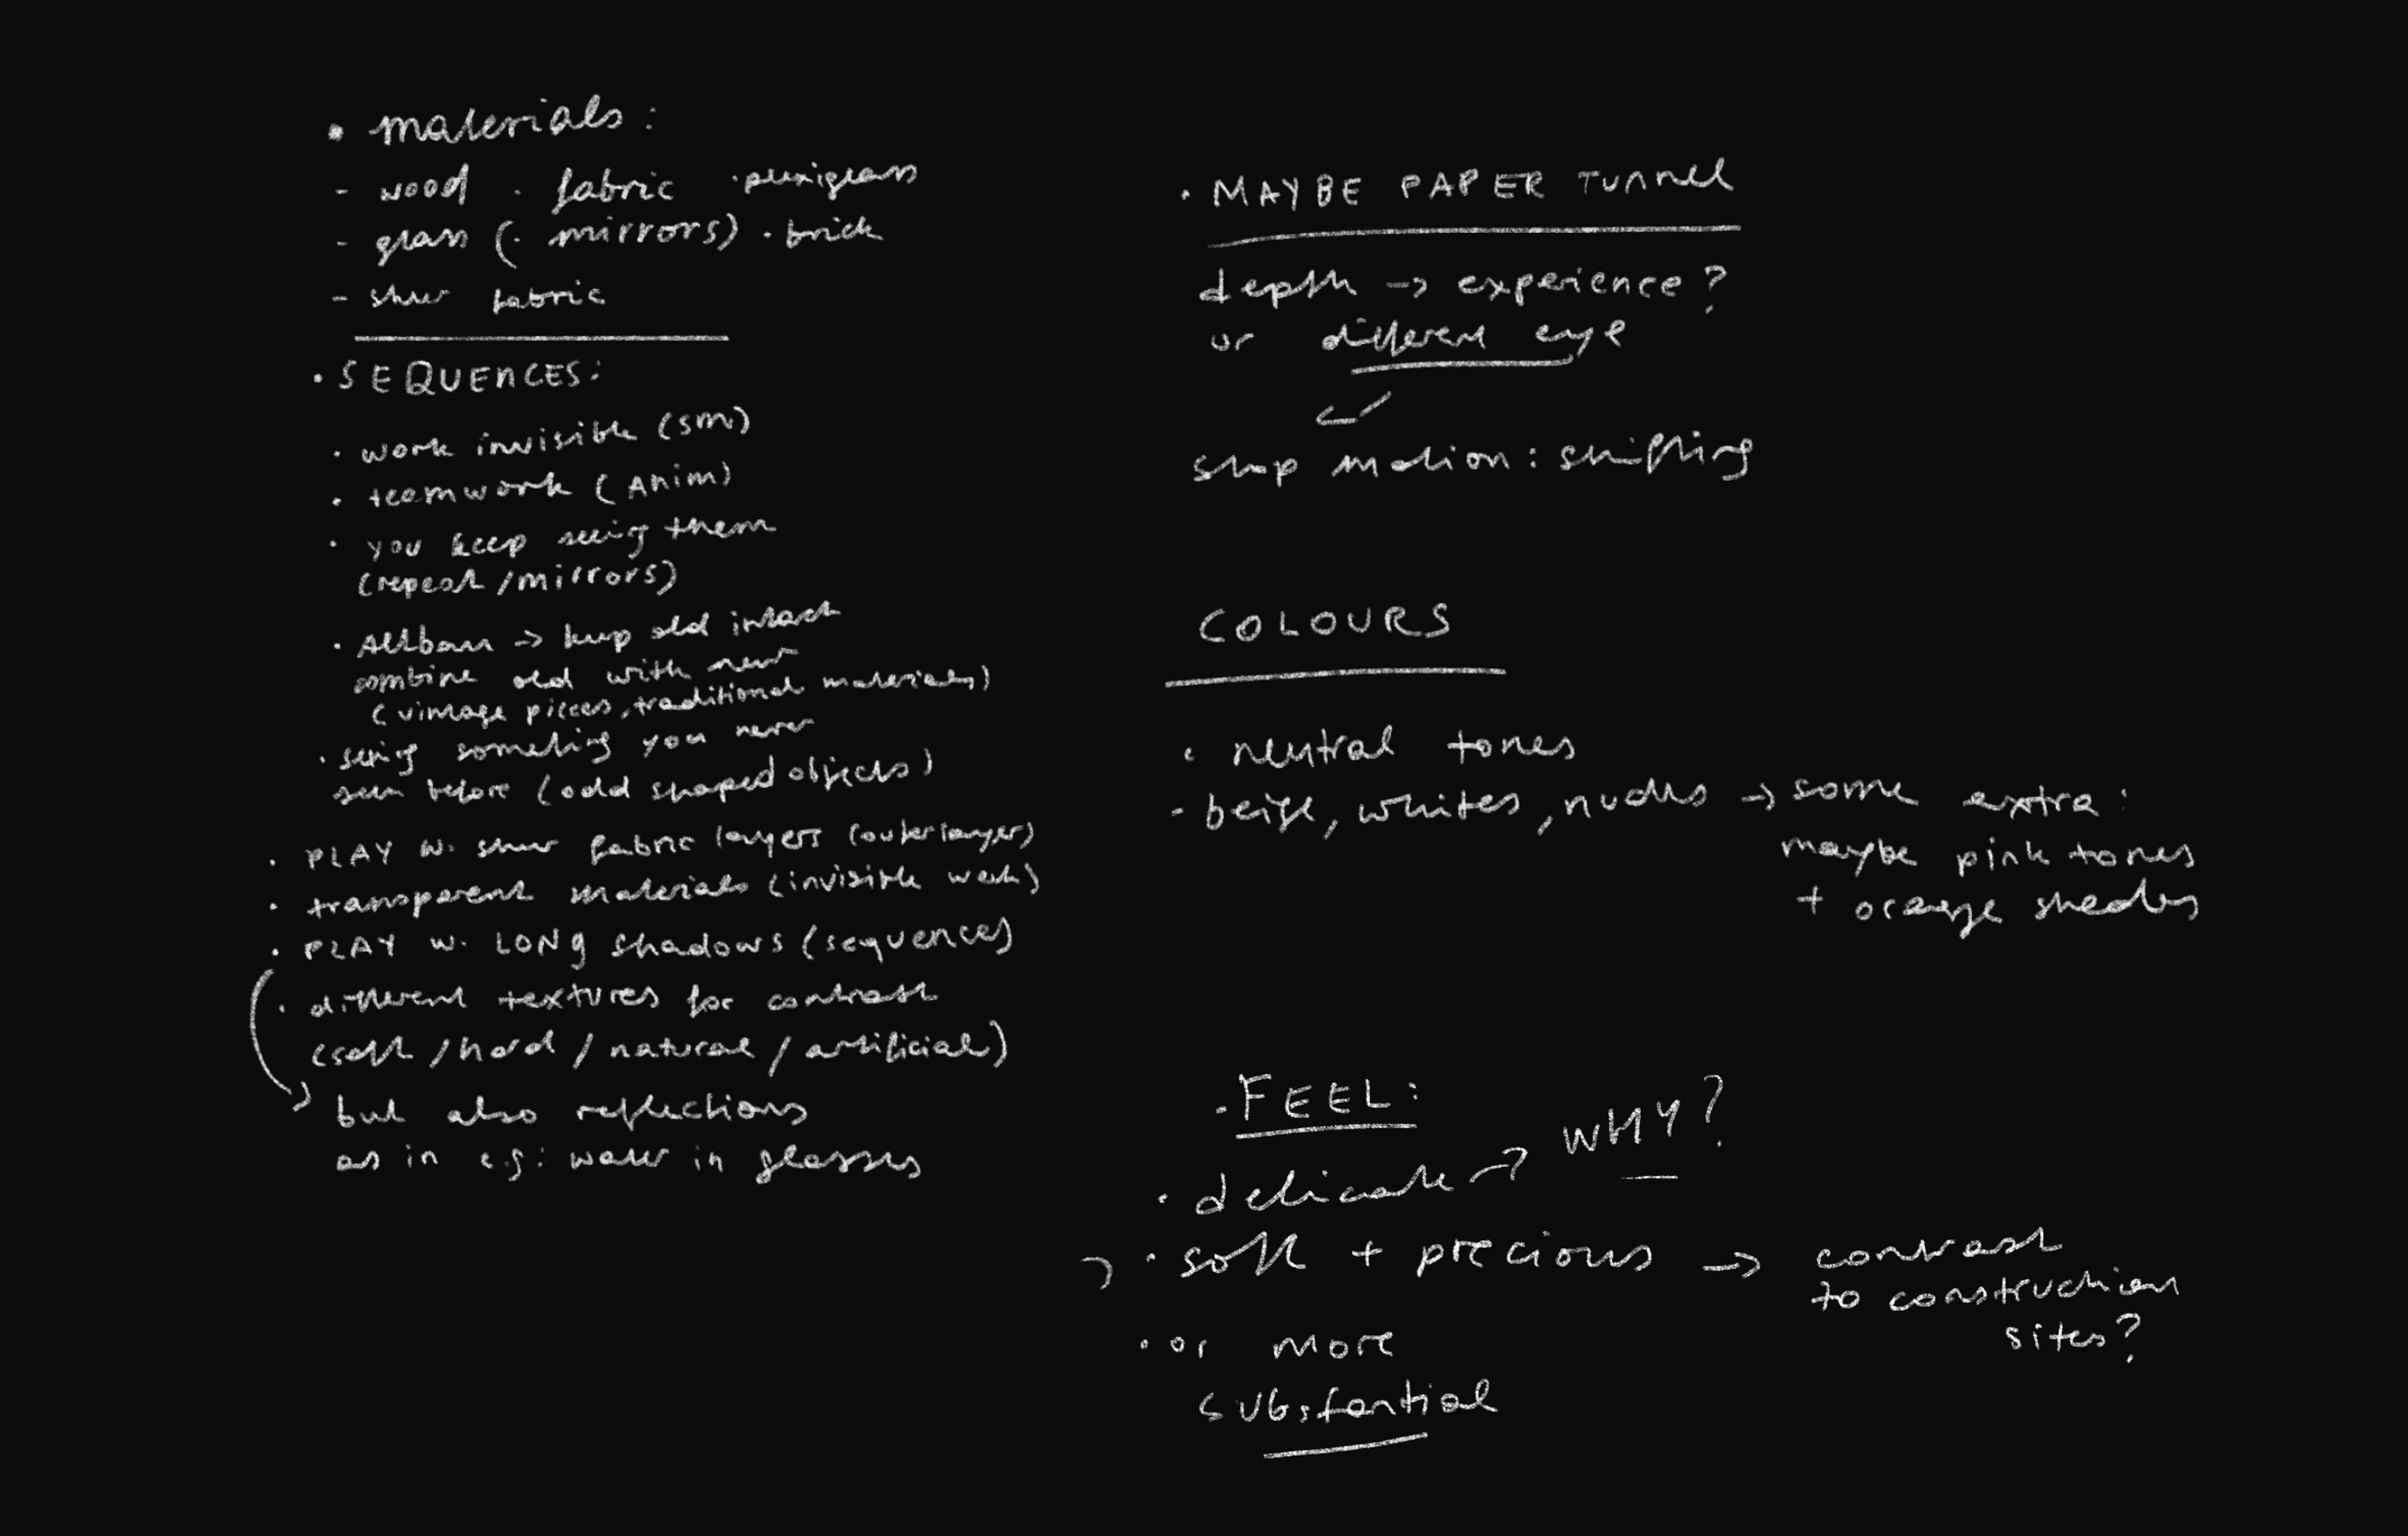 • materials:
- wood · fabric · plexiglass
- glass (· mirrors) · brick
- sheer fabric
• SEQUENCES:
• work invisible (SM)
• teamwork (Anim)
• you keep seeing them
(repeat / mirrors)
• → keep old intact
combine old with new
(vintage pieces, traditional materials)
• seeing something you never
seen before (odd shaped objects)
• PLAY w. sheer fabric layers (outer layer)
• transparent materials (invisible work)
• PLAY w. LONG shadows (sequences)
• different textures for contrast
(soft / hard / natural / artificial)
→ but also reflections
as in e.g: water in glasses
• MAYBE PAPER TUNNEL
depth → experience?
or different eye
stop motion: shifting
COLOURS
• neutral tones
- beige, whites, nudes → some extra:
maybe pink tones
+ orange shades
• FEEL:
• delicate → WHY?
• soft + precious → contrast
to construction
sites?
• or more
substantial